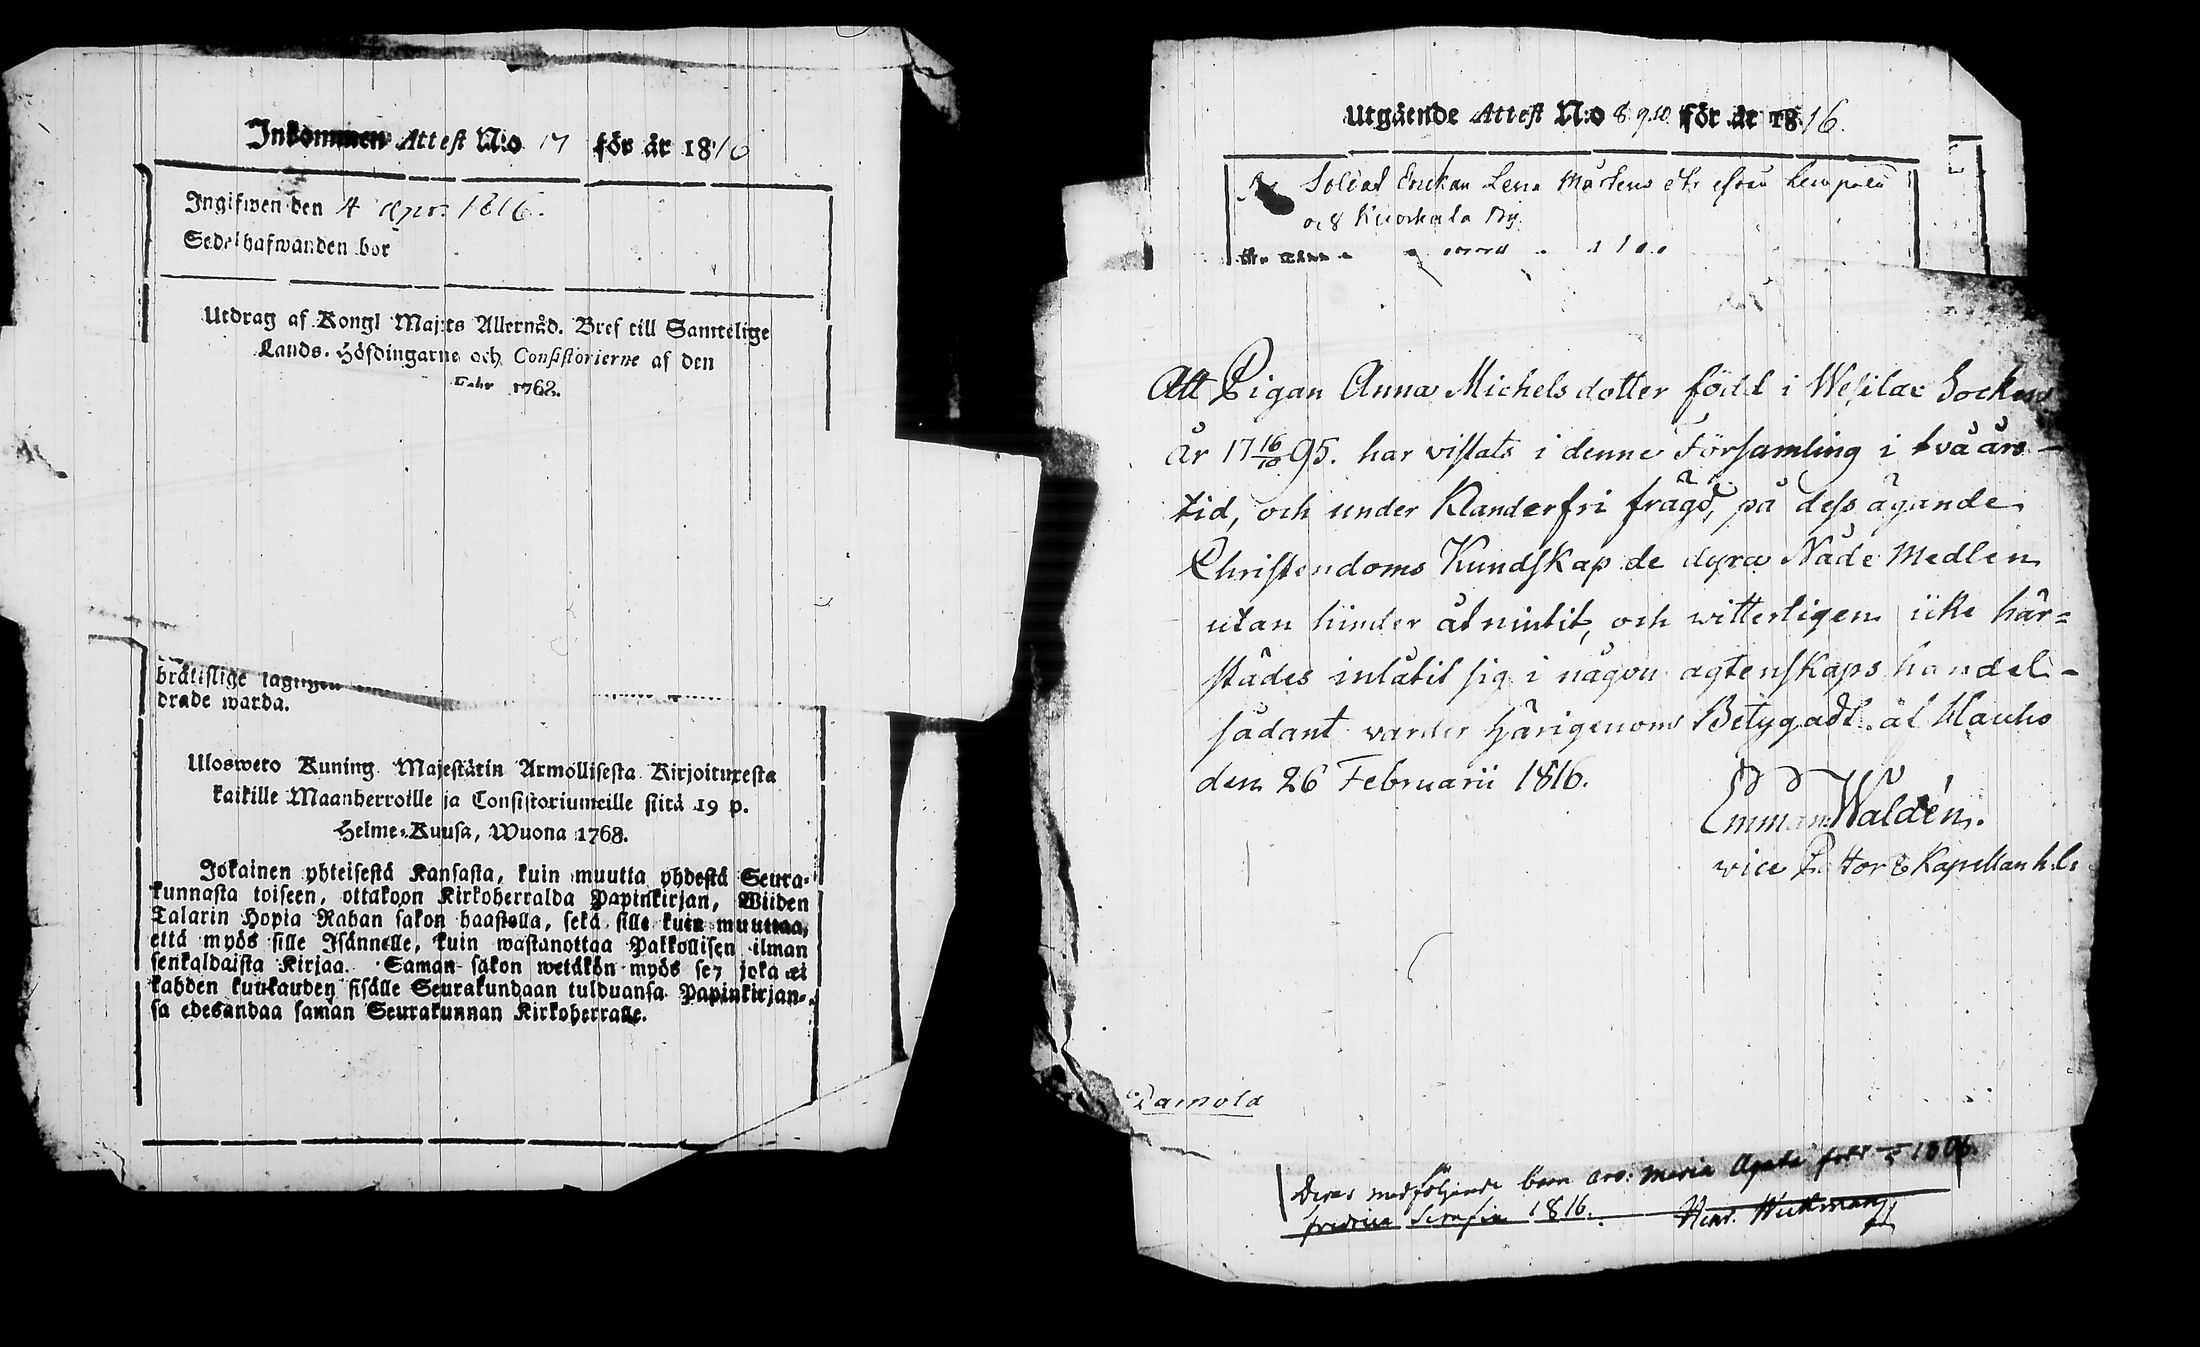 Inkommen Attest N:o 17 för år 1816
Ingifwen den 4 apr. 1816.
Sedelhafwanden bor
Utdrag af Kongl Maj:ts Allernåd. Bref till Samtelige
Lands-Höfdingarne och Consistorierne af den
Febr 1768.
bräcklige
drade warda.
Ulosweto Kuning Majestätin Armollisesta Kirjoituxesta
kaikille Maanherroille ja Consistoriumeille siitä 19 p.
Helme-Kuusa, Wuona 1768.
Jokainen yhteisestä Kansasta, kuin muutta yhdestä Seura-
kunnasta toiseen, ottakoon Kirkoherralda Papinkirjan, Wiiden
Talarin Hopia Rahan sakon haastolla, sekä sille kuin muuttaa,
että myös sille Isännelle, kuin wastanottaa Pakkollisen ilman
senkaldaista Kirjaa. Saman sakon wetäkön myös se, joka ei
kahden kuukauden sisälle Seurakundaan tulduansa Papinkirjan-
sa edesandaa saman Seurakunnan Kirkoherralle.
Utgående Attest N:o 8 9.10 för år 1816.
Soldat Enckan Lena Mårtens dtr ifrån Lempälä
och Kuokala By.
Att Pigan Anna Michelsdotter född i Wesilax Socken
år 17 16/10 95. har vistats i denne Församling i två års
tid, och under Klanderfri frägd, på dess ägande
Christendoms Kundskap de dyra Nåde Medlen
utan hinder åtniutit, och witterligen icke här=
städes inlåtit sig i någon ägtenskaps handel -
sådant warder härigenom Betygadt af Hauho
den 26 Februarii 1816.
Emman Waldén.
vice Pastor & Kapellan h.l.
Deras medföljande barn äro: Maria Agata född 1806
Fredrica Serafia 1816. Henr. Wickman